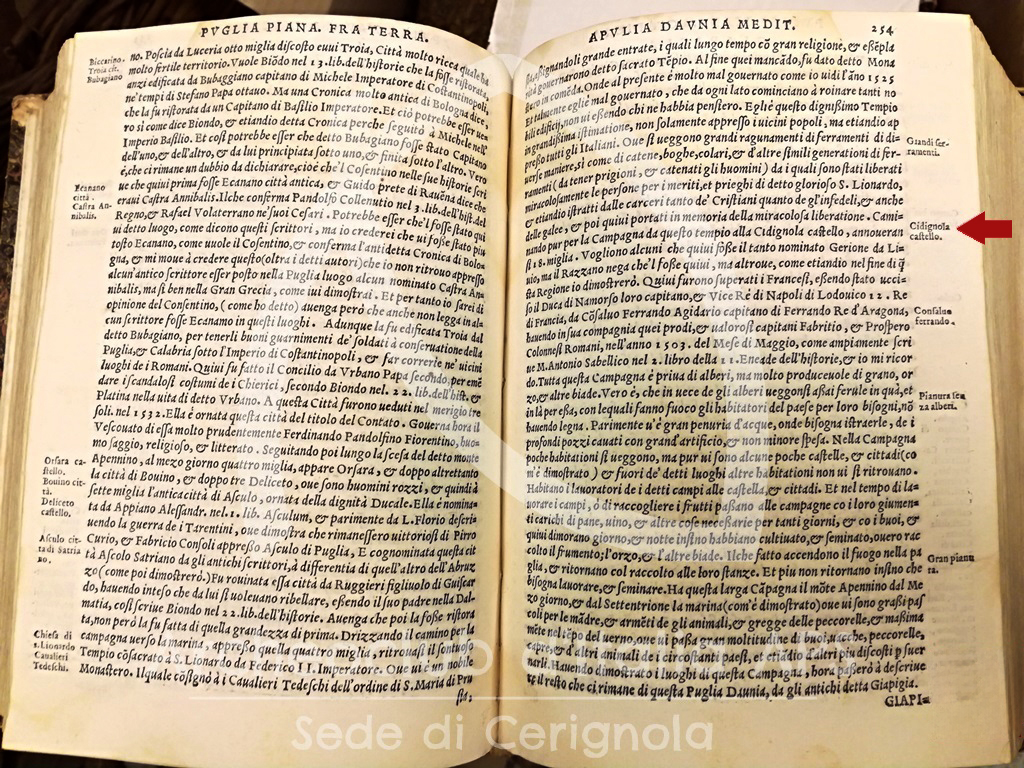 PVGLIA PIANA. FRA TERRA.
Biccarino.
Troia cit.
Bubagiano
no. Poscia da Luceria otto miglia discosto euui Troia, Città molto ricca quale ha
molto fertile territorio. Vuole Biōdo nel 13. lib. dell'historie che la fosse ristorata,
anzi edificata da Bubaggiano capitano di Michele Imperatore di Costantinopoli,
ne' tempi di Stefano Papa ottauo. Ma una Cronica molto antica di Bologna dice,
che la fu ristorata da un Capitano di Basilio Imperatore. Et ciò potrebbe esser ue=
ro sì come dice Biondo, & etiandio detta Cronica perche seguitò à Michele nell'
Imperio Basilio. Et così potrebbe esser che detto Bubagiano fosse stato Capitano
dell'uno, & dell'altro, & da lui principiata sotto uno, & finita sotto l'altro. Vero
é, che ci rimane un dubbio da dichiarare, cioè che'l Cosentino nelle sue historie scri
ue che quiui prima fosse Ecanano città antica, & Guido prete di Rauēna dice che
eraui Castra Annibalis. Ilche conferma Pandolfo Collenutio nel 3. lib. dell'hist. del
Regno, & Rafael Volaterrano ne' suoi Cesari. Potrebbe esser ch'el fosse stato qui
ui detto luogo, come dicono questi scrittori, ma io crederei che ui fosse stato piu
tosto Ecanano, come uuole il Cosentino, & conferma l'antidetta Cronica di Bolo=
gna, & mi moue à credere questo (oltra i detti autori) che io non ritrouo appresso
alcun'antico scrittore esser posto nella Puglia luogo alcun nominato Castra An=
nibalis, ma sì ben nella Gran Grecia, come iui dimostrai. Et per tanto io sarei di
opinione del Consentino, ( come ho detto) auenga però che anche non legga in al=
cun scrittore fosse Ecanamo in questi luoghi. Adunque la fu edificata Troia dal
detto Bubagiano, per tenerli buoni guarnimenti de' soldati à conseruatione della
Puglia, & Calabria sotto l'Imperio di Costantinopoli, & far correrie ne' uicini
luoghi de i Romani. Quiui fu fatto il Concilio da Vrbano Papa secondo, per emē
dare i scandalosi costumi de i Chierici, secondo Biondo nel. 22. lib. dell'hist. &
Platina nella uita di detto Vrbano. A questa Città furono ueduti nel merigio tre
soli. nel 1532. Ella é ornata questa città del titolo del Contato. Gouerna hora il
Vescouato di essa molto prudentemente Ferdinando Pandolfino Fiorentino, huo=
mo saggio, religioso, & litterato. Seguitando poi lungo la scesa del detto monte
Apennino, al mezo giorno quattro miglia, appare Orsara, & doppo altrettanto
la città di Bouino, & doppo tre Deliceto, oue sono huomini rozzi, & quindi à
sette miglia l'antica città di Asculo, ornata della dignità Ducale. Ella é nomina=
ta da Appiano Alessandr. nel. 1. lib. Asculum, & parimente da L. Florio descri=
uendo la guerra de i Tarentini, oue dimostra che rimanessero uittoriosi di Pirro
Curio, & Fabricio Consoli appresso Asculo di Puglia, E cognominata questa cit
tà Ascolo Satriano da gli antichi scrittori, à differentia di quell'altro dell'Abruz
zo (come poi dimostrerò.) Fu rouinata essa città da Ruggieri figliuolo di Guiscar
do, hauendo inteso che da lui si uoleuano ribellare, essendo il suo padre nella Dal=
matia, così scriue Biondo nel 22. lib. dell'historie. Auenga che poi la fosse ristora
ta, non però la fu fatta di quella grandezza di prima. Drizzando il camino per la
campagna uerso la marina, appresso quella quattro miglia, ritrouasi il sontuoso
Tempio cōsacrato à S. Lionardo da Federico II. Imperatore. Oue ui é un nobile
Monastero. Ilquale cōsignò à i Caualieri Tedeschi dell'ordine di S. Maria di Pru
ssia,
Ecanano
città.
Castra An=
nibalis.
Orsara ca=
stello.
Bouino cit=
tà.
Deliceto
castello.
Asculo cit=
ta di Satria
no.
Chiesa di
s. Lionardo
Caualieri
Tedeschi.
APVLIA DAVNIA MEDIT.
254
ssia, assignandoli grande entrate, i quali lungo tempo cō gran religione, & essēpla
rità gouernarono detto sacrato Tēpio. Al fine quei mancādo, fu dato detto Mona
stero in comēda. Onde al presente é molto mal gouernato come io uidi l'āno 1525
Et talmente egliè mal gouernato, che da ogni lato cominciano à roinare tanti no
bili edificij, non ui essendo chi ne habbia pensiero. Egliè questo dignissimo Tempio
in grandissima istimatione, non solamente appresso i uicini popoli, ma etiandio ap
presso tutti gli Italiani. Oue si ueggono grandi ragunamenti di ferramenti di di=
uerse maniere, sì come di catene, boghe, colari, & d'altre simili generationi di fer=
ramenti ( da tener prigioni, & catenati gli huomini) da i quali sono stati liberati
miracolosamente le persone per i meriti, et prieghi di detto glorioso S. Lionardo,
& etiandio istratti dalle carceri tanto de' Cristiani quanto de gl'infedeli, & anche
delle galee, & poi quiui portati in memoria della miracolosa liberatione. Cami=
nando pur per la Campagna da questo tempio alla Cidignola castello, annoueran
si 18. miglia. Vogliono alcuni che quiui fosse il tanto nominato Gerione da Li=
uio, ma il Razzano nega che'l fosse quiui, ma altroue, come etiandio nel fine di q̄
sta Regione io dimostrerò. Quiui furono superati i Francesi, essendo stato ucci=
so il Duca di Namorso loro capitano, & Vice Ré di Napoli di Lodouico 12. Re
di Francia, da Cōsaluo Ferrando Agidario capitano di Ferrando Re d'Aragona,
hauendo in sua compagnia quei prodi, & ualorosi capitani Fabritio, & Prospero
Colonnesi Romani, nell'anno 1503. del Mese di Maggio, come ampiamente scri
ue M. Antonio Sabellico nel 2. libro della 11. Eneade dell'historie, & io mi ricor
do. Tutta questa Campagna é priua di alberi, ma molto produceuole di grano, or
zo, & altre biade. Vero é, che in uece de gli alberi ueggonsi assai ferule in quà, et
in là per essa, con lequali fanno fuoco gli habitatori del paese per loro bisogni, nō
hauendo legna. Parimente u'é gran penuria d'acque, onde bisogna istraerle, de i
profondi pozzi cauati con grand'artificio, & non minore spesa. Nella Campagna
poche habitationi si ueggono, ma pur ui sono alcune poche castelle, & cittadi (co
m'é dimostrato ) & fuori de' detti luoghi altre habitationi non ui si ritrouano.
Habitano i lauoratori de i detti campi alle castella, & cittadi. Et nel tempo di la=
uorare i campi, ò di raccogliere i frutti passano alle campagne co i loro giumen=
ti carichi di pane, uino, & altre cose necessarie per tanti giorni, & co i buoi, &
quiui dimorano giorno, & notte insino habbiano cultiuato, & seminato, ouero rac
colto il frumento, l'orzo, & l'altre biade. Ilche fatto accendono il fuoco nella pa
glia, & ritornano col raccolto alle loro stanze. Et piu non ritornano insino che
bisogna lauorare, & seminare. Ha questa larga Cāpagna il mōte Apennino dal Me
zo giorno, & dal Settentrione la marina (com'é dimostrato) oue ui sono grassi pas
coli per le mādre, & armēti de gli animali, & gregge delle peccorelle, & massima
mēte nel tēpo del uerno, oue ui passa gran moltitudine di buoi, uacche, peccorelle,
capre, & d'altri animali de i circostanti paesi, et etiādio d'altri piu discosti p suer
narli. Hauendo dimostrato i luoghi di questa Campagna, hora passerò à descriue
re il resto che ci rimane di questa Puglia Daunia, da gli antichi detta Giapigia.
GIAPI=
Grandi fer=
ramenti.
Cidignola
castello.
Consaluo
ferrando.
Pianura sen
za alberi.
Gran pianu
ra.
Sede di Cerignola